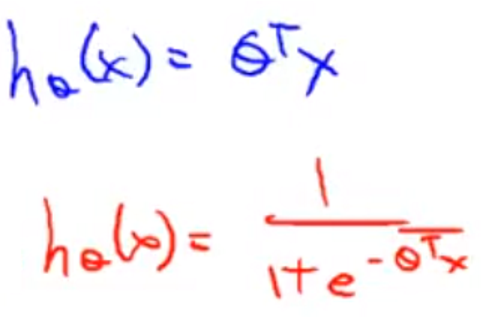 h_θ(x) = θ^T x
h_θ(x) = 1 / (1 + e^{-θ^T x})